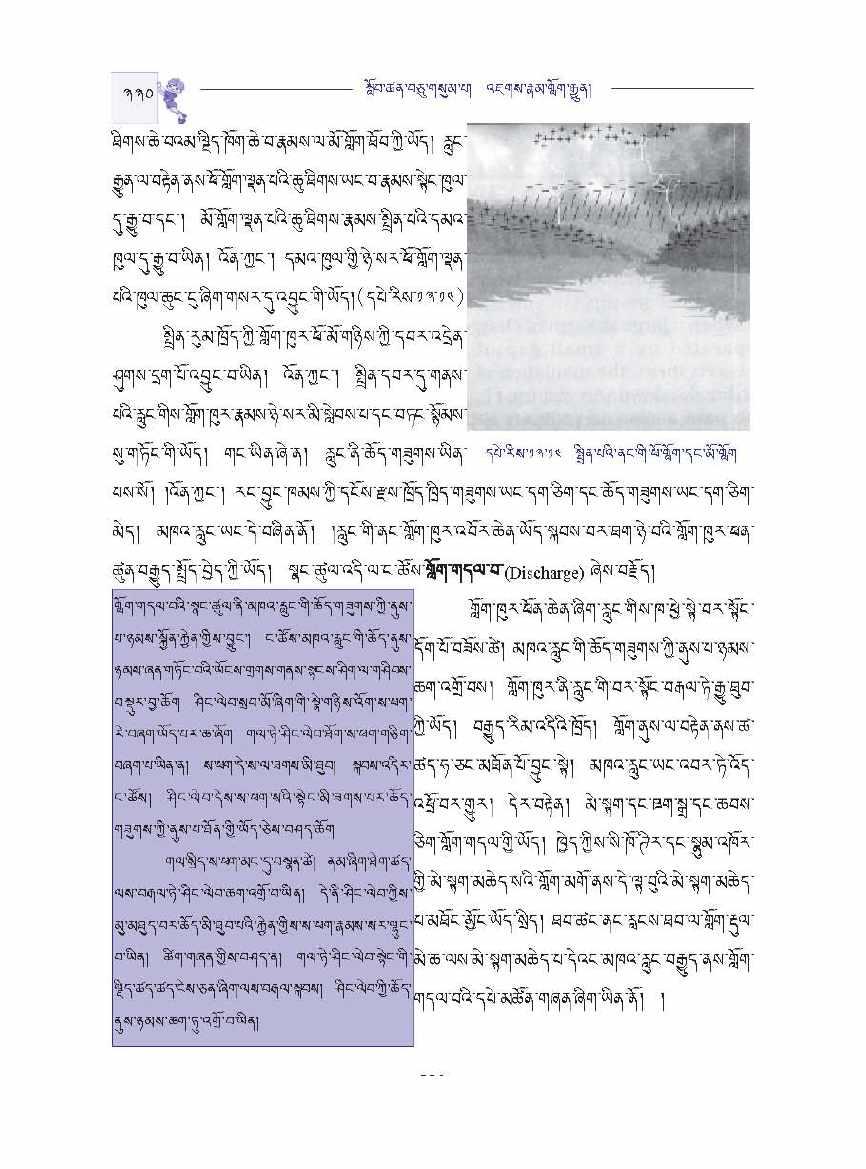 ༢༢༠
སློབ་ཚན་བཅུ་གསུམ་པ། འཇགས་རྣམ་གློག་རྒྱུན།
ཐིགས་ཆེ་བའམ་ལྗིད་ཁོག་ཆེ་བ་རྣམས་ལ་མོ་གློག་ཐོབ་ཀྱི་ཡོད། རླུང་
རྒྱུན་ལ་བརྟེན་ནས་ཕོ་གློག་ལྡན་པའི་ཆུ་ཐིགས་ཡང་བ་རྣམས་སྟེང་ཁུལ་
དུ་རྒྱུ་བ་དང་། མོ་གློག་ལྡན་པའི་ཆུ་ཐིགས་རྣམས་སྤྲིན་པའི་དམའ་
ཁུལ་དུ་རྒྱུ་བ་ཡིན། འོན་ཀྱང་། དམའ་ཁུལ་གྱི་ཉེ་སར་ཕོ་གློག་ལྡན་
པའི་ཁུལ་ཆུང་ངུ་ཞིག་གསར་དུ་འབྱུང་གི་ཡོད། (དཔེ་རིས་༡༣་༡༤)
སྤྲིན་རུམ་ཁྲོད་ཀྱི་གློག་ཁུར་ཕོ་མོ་གཉིས་ཀྱི་དབར་འདྲེན་
ཤུགས་དྲག་པོ་འབྱུང་བ་ཡིན། འོན་ཀྱང་། སྤྲིན་དབར་དུ་གནས་
པའི་རླུང་གིས་གློག་ཁུར་རྣམས་ཉེ་སར་མི་སླེབས་པ་དང་བཏང་སྙོམས་
སུ་གཏོང་གི་ཡོད། གང་ཡིན་ཞེ་ན། རླུང་ནི་ཆོད་གཟུགས་ཡིན་
དཔེ་རིས་༡༣་༡༤ སྤྲིན་པའི་ནང་གི་ཕོ་གློག་དང་མོ་གློག
པས་སོ། །འོན་ཀྱང་། རང་བྱུང་ཁམས་ཀྱི་དངོས་རྫས་ཁྲོད་ཁྲིད་གཟུགས་ཡང་དག་ཅིག་དང་ཆོད་གཟུགས་ཡང་དག་ཅིག་
མེད། མཁའ་རླུང་ཡང་དེ་བཞིན་ནོ། །རླུང་གི་ནང་གློག་ཁུར་འབོར་ཆེན་ཡོད་སྐབས་བར་ཐག་ཉེ་བའི་གློག་ཁུར་ཕན་
ཚུན་བརྒྱུད་སྤྲོད་བྱེད་ཀྱི་ཡོད། སྣང་ཚུལ་འདི་ལ་ང་ཚོས་གློག་གདལ་བ་(Discharge) ཞེས་བརྗོད།
གློག་གདལ་བའི་སྣང་ཚུལ་ནི་མཁའ་རླུང་གི་ཆོད་གཟུགས་ཀྱི་ནུས་
པ་ཉམས་སྐྱོན་རྐྱེན་གྱིས་བྱུང་། ང་ཚོས་མཁའ་རླུང་གི་ཆོད་ནུས་
ཉམས་ཞན་གཏོང་བའི་ཡོངས་གྲགས་གནས་སྟངས་ཤིག་ལ་གཤིབས་
བསྡུར་བྱ་ཆོག ཤིང་ལེབ་སྲབ་མོ་ཞིག་གི་སྣེ་གཉིས་འོག་ས་ཕག་
རེ་བཞག་ཡོད་པར་ཆ་ཞོག གལ་ཏེ་ཤིང་ལེབ་ཐོག་ས་ཕག་གཅིག་
བཞག་པ་ཡིན་ན། ས་ཕག་དེ་ས་ལ་ཟགས་མི་ཐུབ། སྐབས་འདིར་
ང་ཚོས། ཤིང་ལེབ་དེས་ས་ཕག་སའི་སྟེང་མི་ཟགས་པར་ཆོད་
གཟུགས་ཀྱི་ནུས་པ་ཐོན་གྱི་ཡོད་ཅེས་བཤད་ཆོག
གལ་སྲིད་ས་ཕག་མང་དུ་བསྣན་ཚེ། ནམ་ཞིག་ཐེག་ཚད་
ལས་བརྒལ་ཏེ་ཤིང་ལེབ་ཆག་འགྲོ་བ་ཡིན། དེ་ནི་ཤིང་ལེབ་ཀྱིས་
མུ་མཐུད་བར་ཆོད་མི་ཐུབ་པའི་རྐྱེན་གྱིས་ས་ཕག་རྣམས་སར་ལྷུང་
བ་ཡིན། ཚིག་གཞན་གྱིས་བཤད་ན། གལ་ཏེ་ཤིང་ལེབ་སྟེང་གི་
ལྗིད་ཚད་ཚད་ངེས་ཅན་ཞིག་ལས་བརྒལ་སྐབས། ཤིང་ལེབ་ཀྱི་ཆོད་
ནུས་ཉམས་ཆག་ཏུ་འགྲོ་བ་ཡིན།
གློག་ཁུར་ཕོན་ཆེན་ཞིག་རླུང་གིས་ཁ་ཕྱེ་སྟེ་བར་སྟོང་
དོག་པོ་བཟོས་ཚེ། མཁའ་རླུང་གི་ཆོད་གཟུགས་ཀྱི་ནུས་པ་ཉམས་
ཆག་འགྲོ་བས། གློག་ཁུར་ནི་རླུང་གི་བར་སྟོང་བརྒལ་ཏེ་རྒྱུ་ཐུབ་
ཀྱི་ཡོད། བརྒྱུད་རིམ་འདིའི་ཁྲོད། གློག་ནུས་ལ་བརྟེན་ནས་ཚ་
ཚད་ཧ་ཅང་མཐོན་པོ་བྱུང་སྟེ། མཁའ་རླུང་ཡང་འབར་ཏེ་འོད་
འཕྲོ་བར་གྱུར། དེར་བརྟེན། མེ་སྟག་དང་ཁག་སྒྲ་དང་ཆབས་
ཅིག་གློག་གདལ་གྱི་ཡོད། ཁྱེད་ཀྱིས་སི་ཁོ་ཊིར་དང་སྣུམ་འཁོར་
གྱི་མེ་སྟག་མཆེད་སའི་གློག་མགོ་ནས་དེ་ལྟ་བུའི་མེ་སྟག་མཆེད་
པ་མཐོང་མྱོང་ཡོད་སྲིད། ཐབ་ཚང་ནང་རླངས་ཐབ་ལ་གློག་རྡུལ་
མེ་ཆ་ལས་མེ་སྟག་མཆེད་པ་དེའང་མཁའ་རླུང་བརྒྱུད་ནས་གློག་
གདལ་བའི་དཔེ་མཚོན་གཞན་ཞིག་ཡིན་ནོ། །